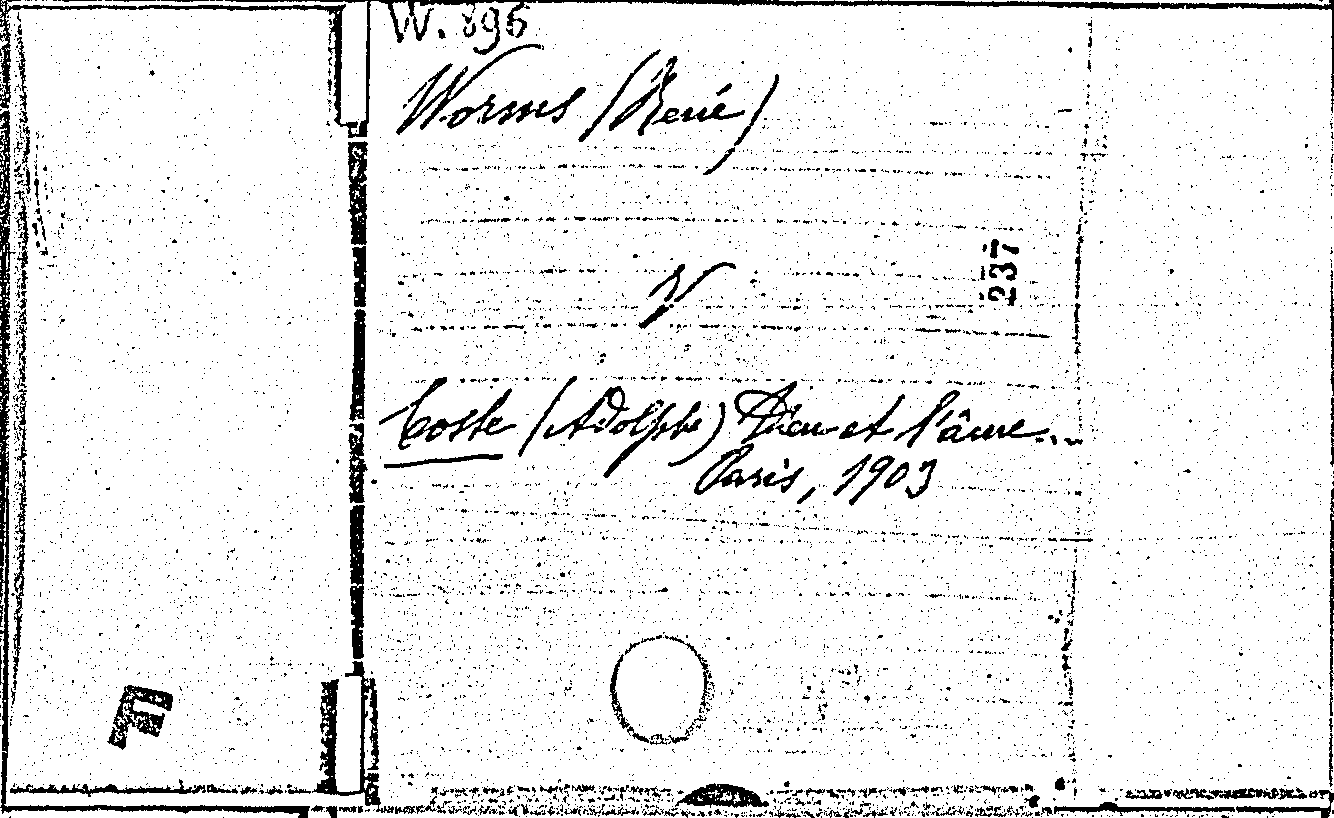 W. 896
Worms (René)
V
237
Coste (Adolphe) Dieu et l'âme...
Paris, 1903
F